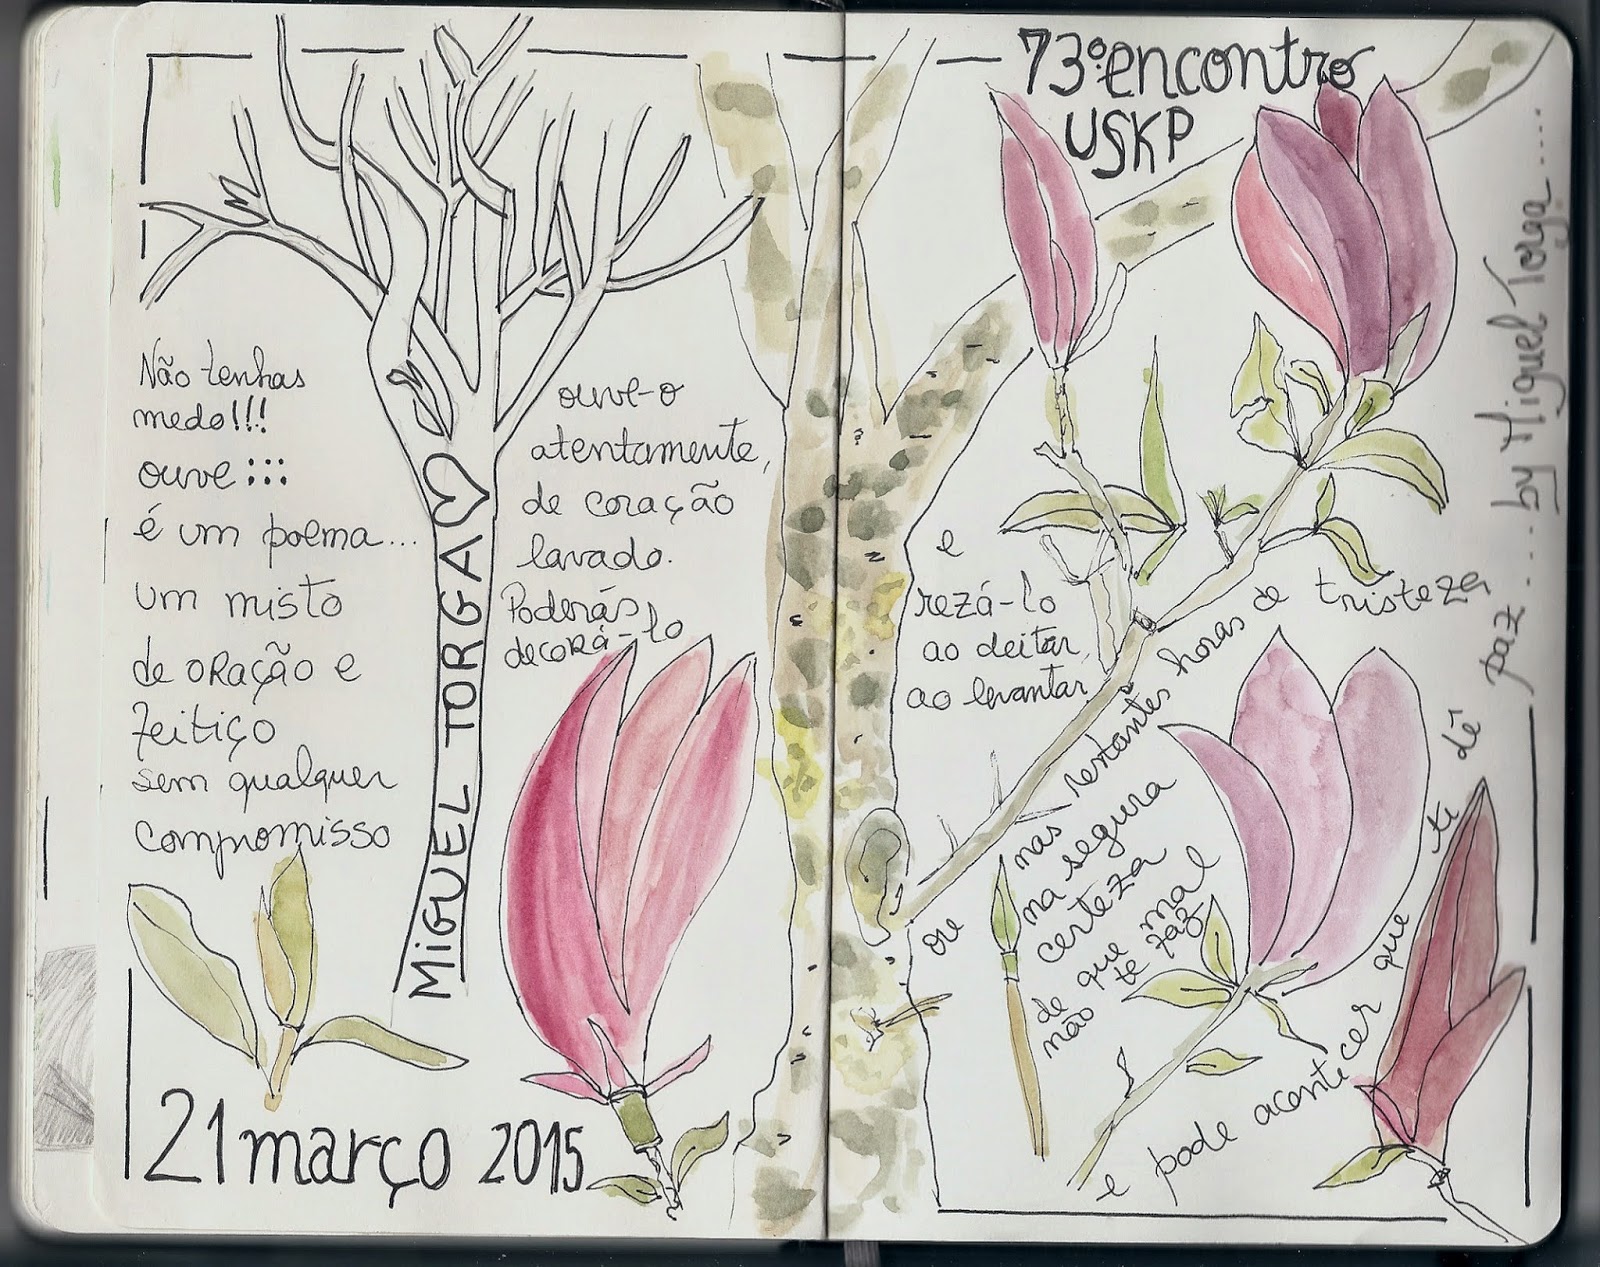 73º encontro
USKP
Não tenhas
medo!!!
ouve :::
é um poema...
um misto
de oração e
feitiço
sem qualquer
compromisso
MIGUEL TORGA
ouve-o
atentamente,
de coração
lavado.
Poderás
decorá-lo
21 março 2015
e
rezá-lo
ao deitar,
ao levantar,
ou
restantes horas de tristeza
mas
na segura
certeza
de que mal
não te faz
e pode acontecer que te dê paz.... by Miguel Torga....